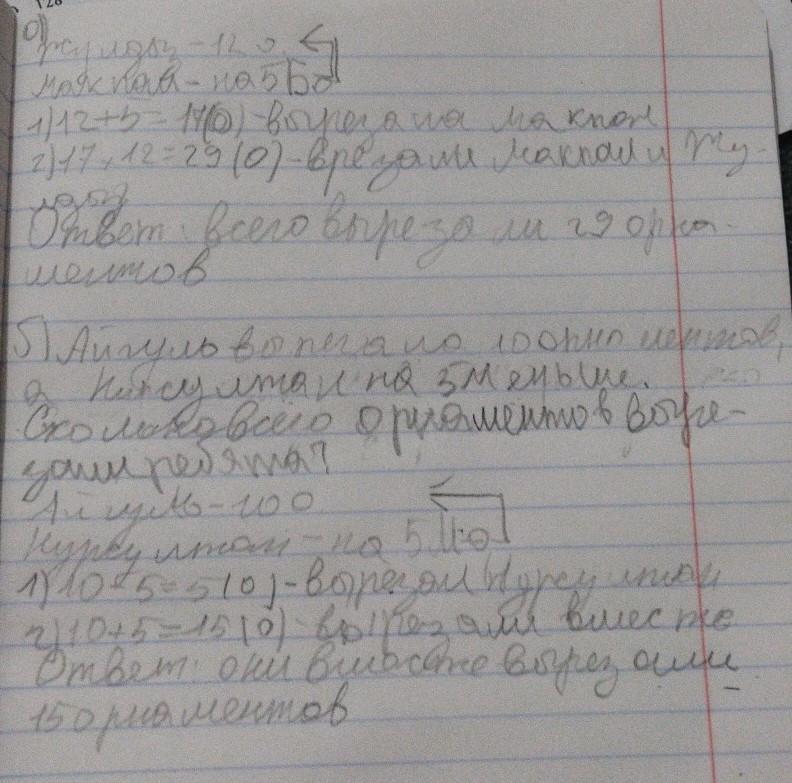 128
а)
Жулдыз - 12 о.
Макпал - на 5 Бо
1) 12+5=17(о) - вырезала макпал
2) 17+12=29 (о) - врезали Макпал и Жу-
лдыз
Ответ: всего вырезали 29 орна-
ментов
б) Айгуль вырезала 10 орнаментов,
а Нурсултан на 5 меньше.
Сколько всего орнаментов выре-
зали ребята?
Айгуль - 10 о
Нурсултан - на 5 Мо
1) 10-5=5(о) - вырезал Нурсултан
2) 10+5=15(о) вырезали вместе
Ответ: они вместе вырезали
15 орнаментов